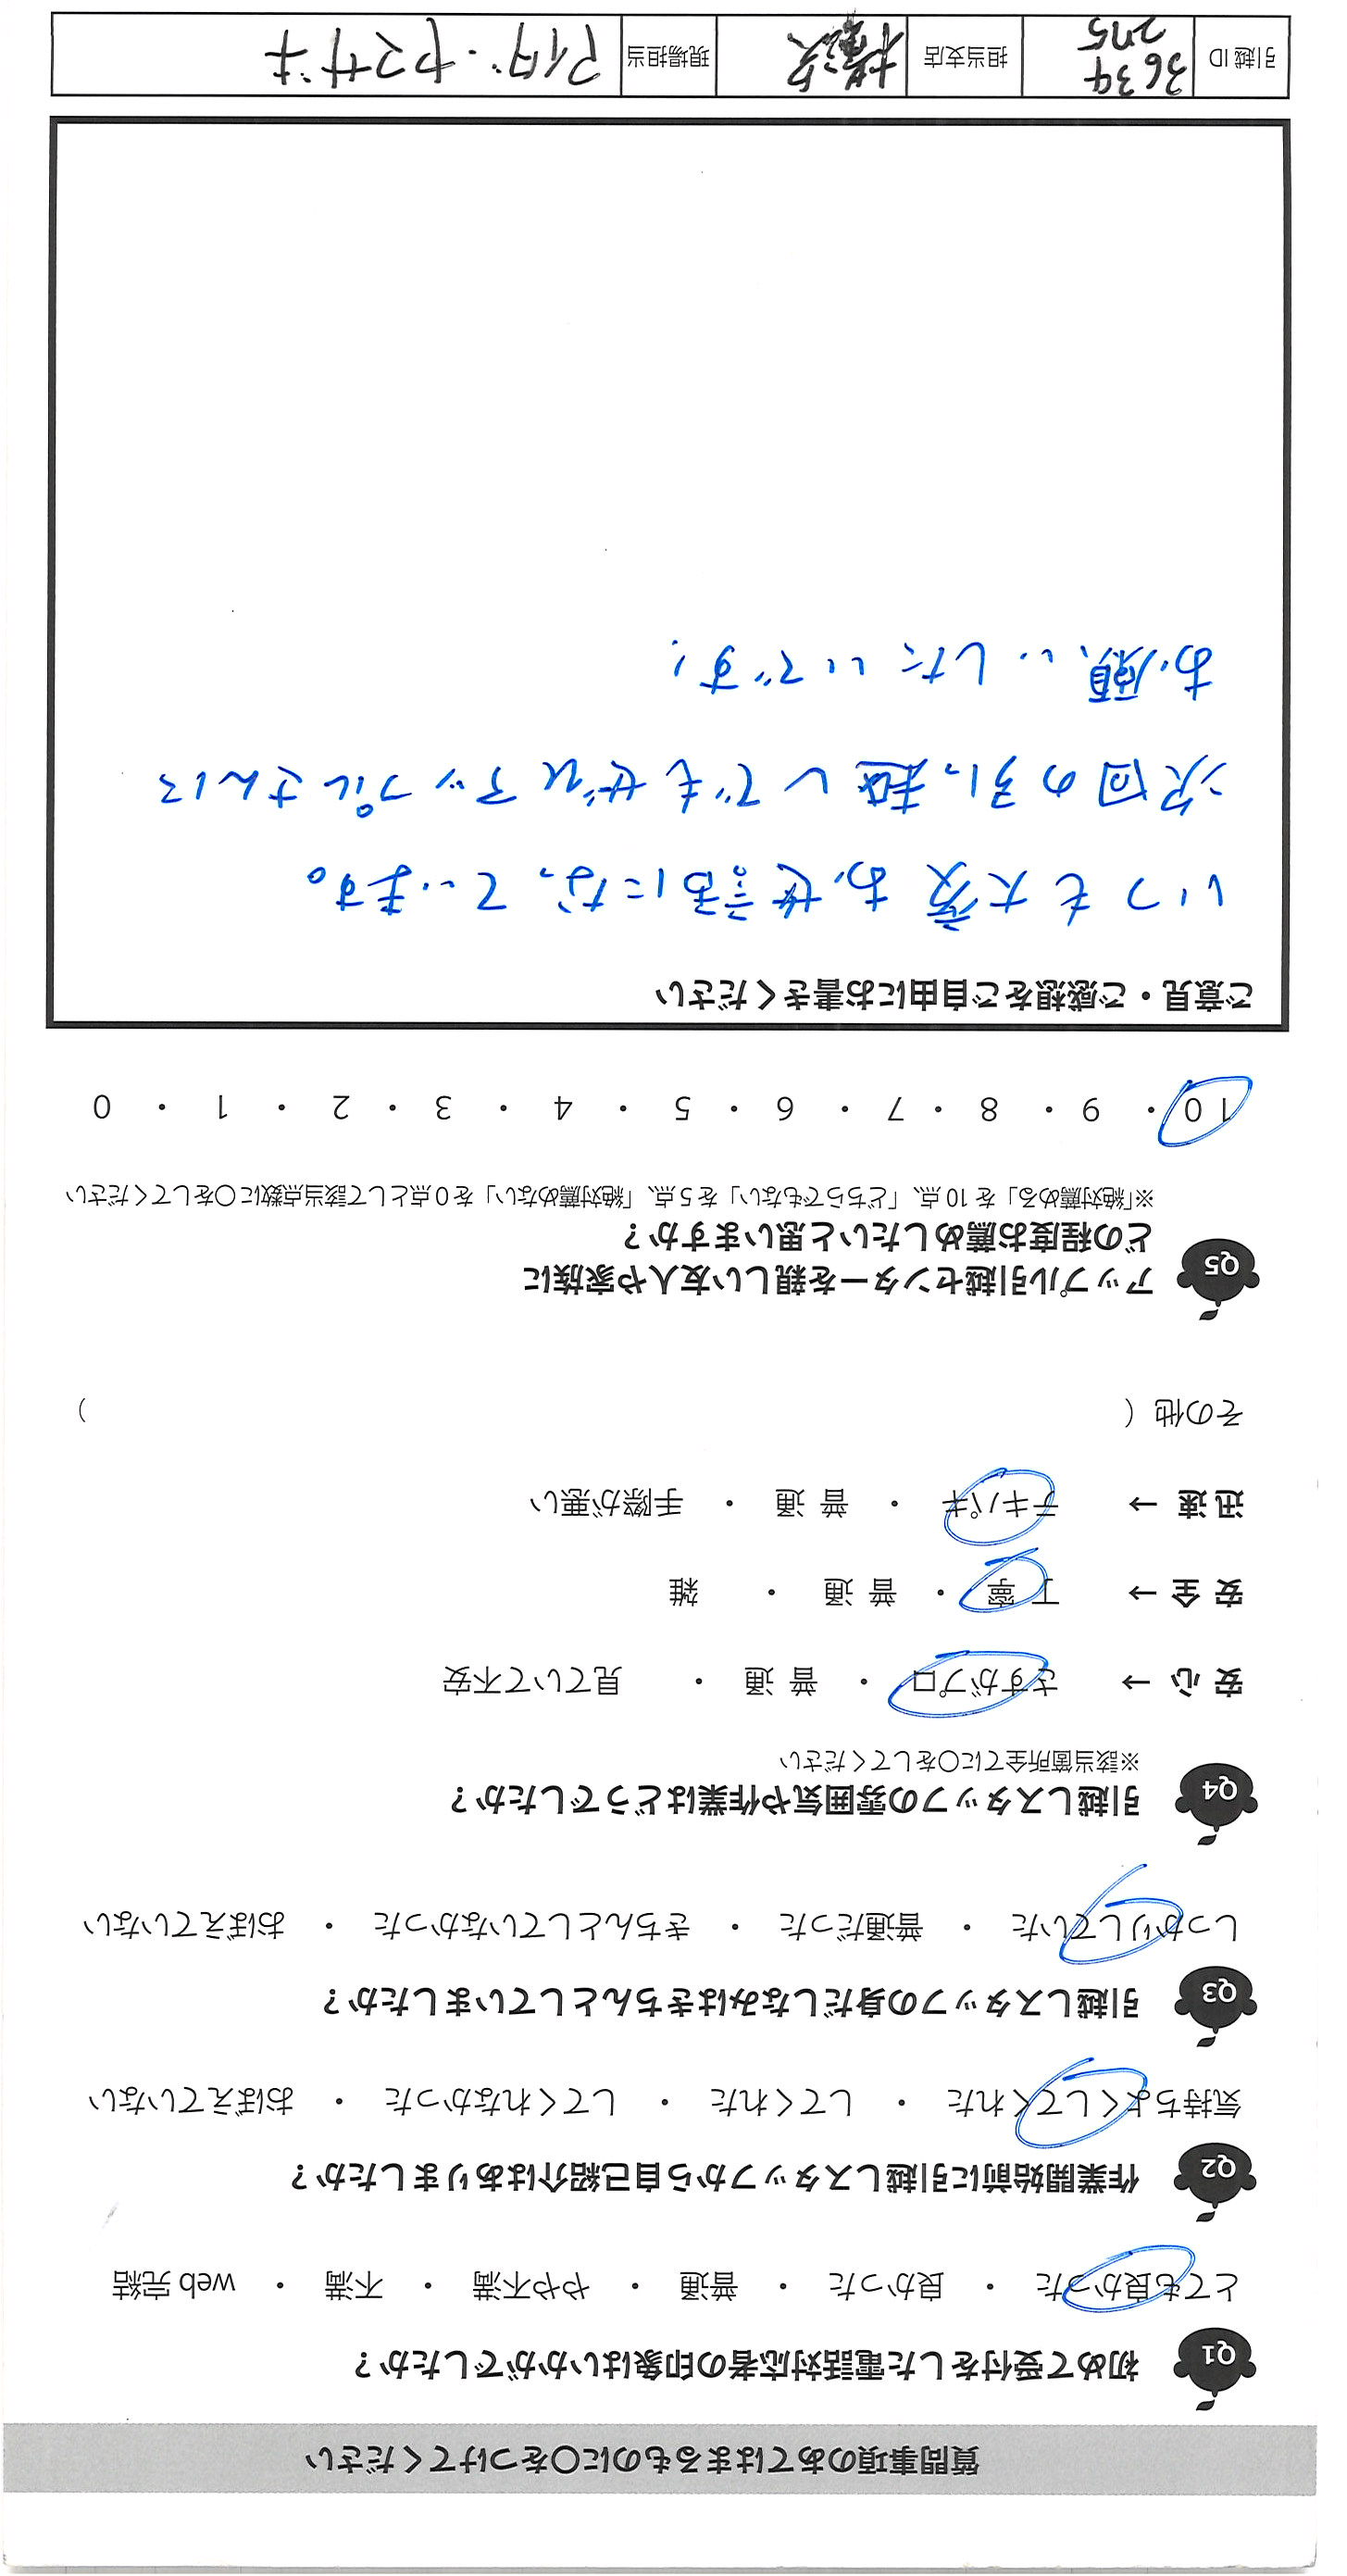 質問事項のあてはまるものに〇をつけてください
Q1 初めて受付をした電話対応者の印象はいかがでしたか?
とても良かった ・ 良かった ・ 普通 ・ やや不満 ・ 不満 ・ web完結
Q2 作業開始前に引越しスタッフから自己紹介はありましたか?
気持ちよくしてくれた ・ してくれた ・ してくれなかった ・ おぼえていない
Q3 引越しスタッフの身だしなみはきちんとしていましたか?
しっかりしていた ・ 普通だった ・ きちんとしていなかった ・ おぼえていない
Q4 引越しスタッフの雰囲気や作業はどうでしたか?
※該当箇所全てに〇をしてください
安心 → さすがプロ ・ 普通 ・ 見ていて不安
安全 → 丁寧 ・ 普通 ・ 雑
迅速 → テキパキ ・ 普通 ・ 手際が悪い
その他 ( )
Q5 アップル引越センターを親しい友人や家族に
どの程度お薦めしたいと思いますか?
※「絶対薦める」を10点、「どちらでもない」を5点、「絶対薦めない」を0点として該当点数に〇をしてください
10 ・ 9 ・ 8 ・ 7 ・ 6 ・ 5 ・ 4 ・ 3 ・ 2 ・ 1 ・ 0
ご意見・ご感想をご自由にお書きください
いつも大変お世話になっています。
次回の引っ越しでもぜひアップルさんに
お願いしたいです!
引越ID 3634 275 担当支店 横浜 現場担当 アイダ・ヤマザキ